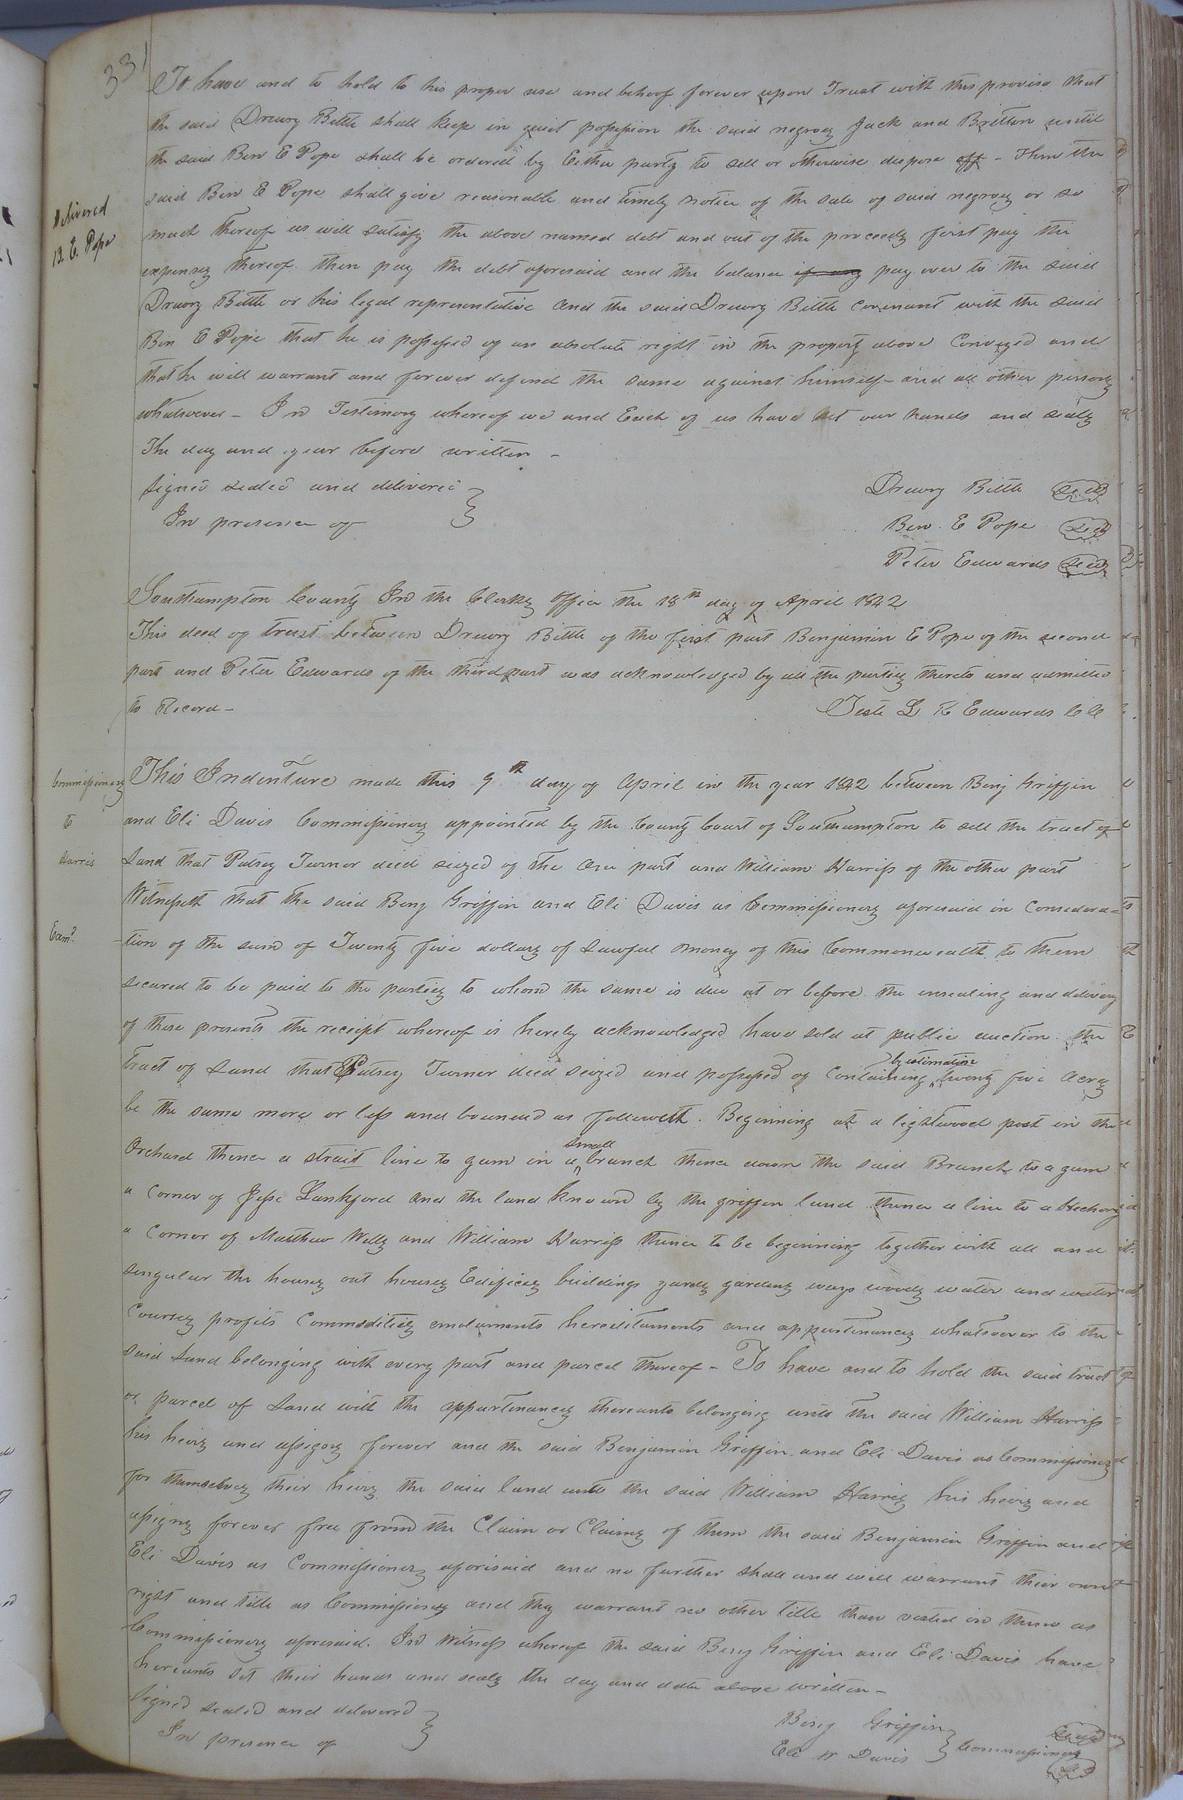 331
To have and to hold to his proper use and behoof forever upon Trust with this proviso that
the said Drewry Bittle shall keep in quiet possession the said negroes Jack and Britten until
the said Ben E Pope shall be ordered by Either party to sell or otherwise dispose off - Then the
said Ben E Pope shall give reasonable and timely notice of the sale of said negroes or so
Delivered
B. E. Pope
much thereof as will satisfy the above named debt and out of the proceeds first pay the
expenses thereof then pay the debt aforesaid and the balance if any pay over to the said
Drewry Bittle or his legal representative and the said Drewry Bittle covenant with the said
Ben E Pope that he is possessed of an absolute right in the property above Conveyed and
that he will warrant and forever defend the same against himself - and all other persons
whatsoever - In Testimony whereof we and Each of us have set our hands and seals
The day and year before written -
Signed sealed and delivered
In presence of
Drewry Bittle Seal
Ben. E Pope Seal
Peter Edwards Seal
Southampton County In the Clerks office the 18th day of April 1842
This deed of trust between Drewry Bittle of the first part Benjamin E Pope of the second
part and Peter Edwards of the third part was acknowledged by all the parties thereto and admitted
to Record -
Teste L R Edwards Clk
Commissioners
to
Harris
Exmd.
This Indenture made this 9th day of April in the year 1842 between Benj Griffin
and Eli Davis Commissioners appointed by the County Court of Southampton to sell the tract of
Land that Patsey Turner died seized of the one part and William Harriss of the other part
Witnesseth that the said Benj Griffin and Eli Davis as Commissioners aforesaid in Considera-
tion of the sum of Twenty five dollars of Lawful money of this Commonwealth to them
secured to be paid to the parties to whom the same is due at or before the ensealing and delivery
of these presents the receipt whereof is hereby acknowledged have sold at public auction the
tract of Land that Patsey Turner died seized and possessed of Containing by estimation twenty five Acres
be the same more or less and bounded as followeth. Beginning at a lightwood post in the
Orchard thence a strait line to gum in a small branch thence down the said Branch to a gum
a corner of Jesse Lankford and the land known by the griffin land thence a line to a Hickory
a Corner of Matthew Wells and William Harriss thence to be beginning together with all and
singular the houses out houses Edifices buildings yards gardens ways woods water and water
Courses profits Commodities emoluments hereditaments and appurtenances whatsoever to the
said Land belonging with every part and parcel thereof - To have and to hold the said tract
or parcel of Land with the appurtenances thereunto belonging unto the said William Harriss
his heirs and assigns forever and the said Benjamin Griffin and Eli Davis as Commissioners
for themselves their heirs the said land unto the said William Harris his heirs and
assigns forever free from the Claim or Claims of them the said Benjamin Griffin and
Eli Davis as Commissioners aforesaid and no further shall and will warrant their own
right and title as Commissioners and they warrant no other title than vested in them as
Commissioners aforesaid. In Witness whereof the said Benj Griffin and Eli Davis have
hereunto set their hands and seals the day and date above written -
Signed sealed and delivered
In presence of
Benj Griffin
Eli W Davis
Commissioners
Seal